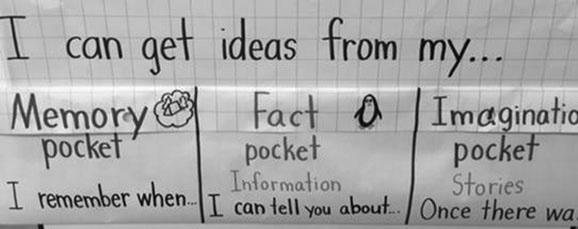 I can get ideas from my...
Memory
pocket
I remember when...
Fact
pocket
Information
I can tell you about...
Imaginatio
pocket
Stories
Once there wa